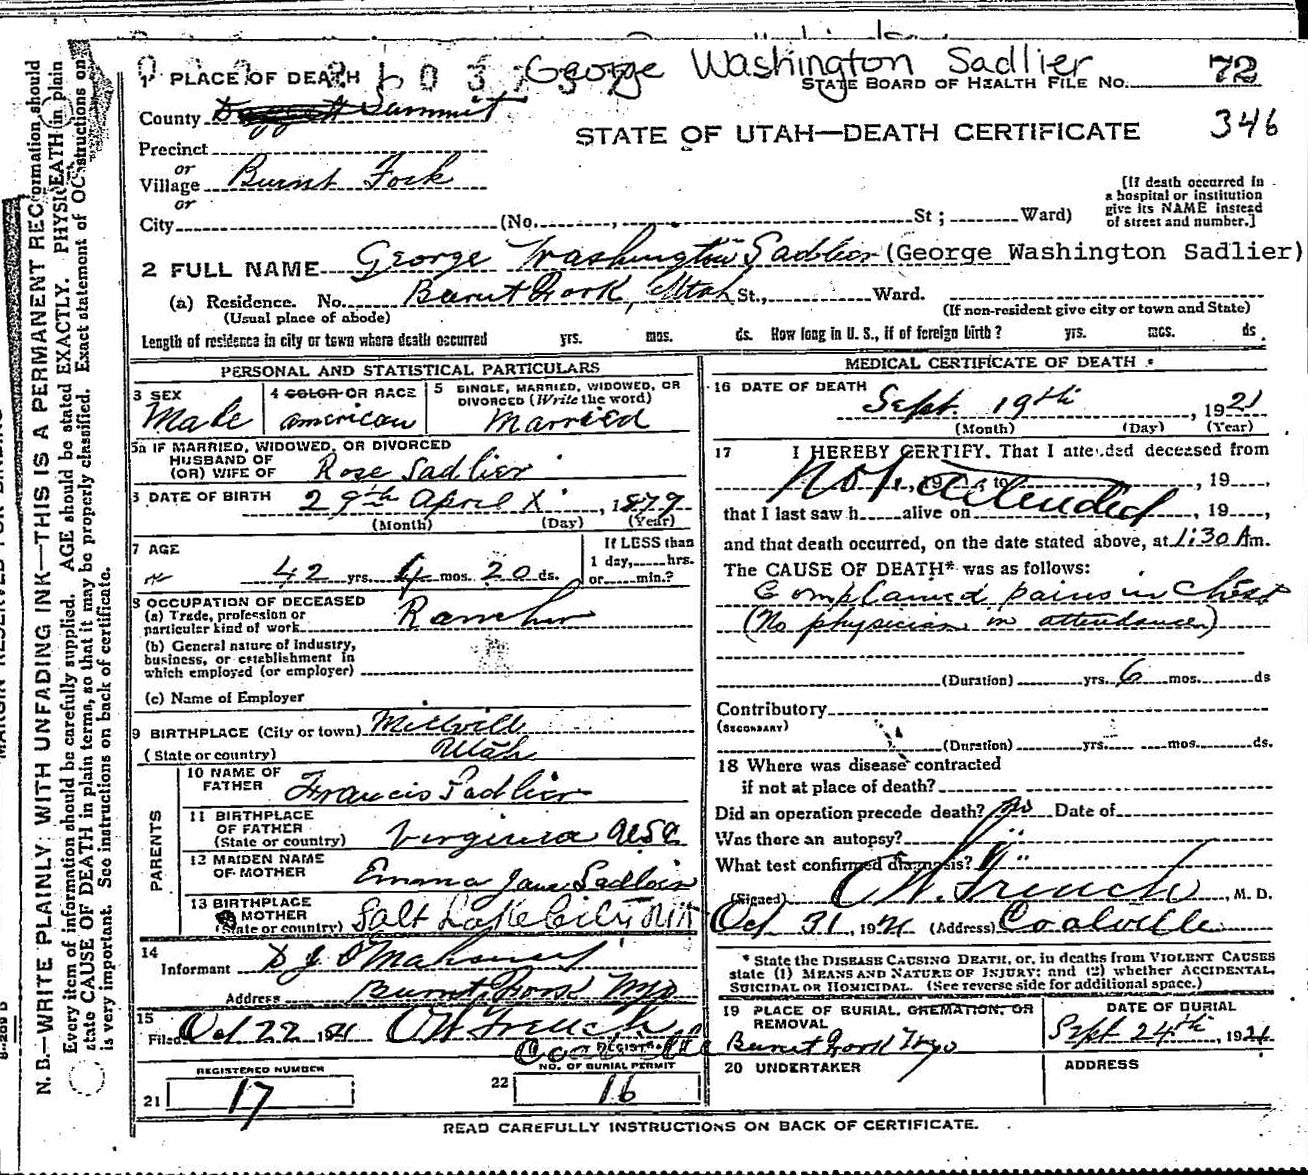 George Washington Sadlier
1 PLACE OF DEATH
STATE BOARD OF HEALTH FILE No. 72
County Daggett Summit
STATE OF UTAH—DEATH CERTIFICATE 346
Precinct
or
Village Burnt Fork
or
City (No. , St ; Ward)
[If death occurred in
a hospital or institution
give its NAME instead
of street and number.]
2 FULL NAME George Washington Sadlier (George Washington Sadlier)
(a) Residence. No. Burnt Fork, Utah St., Ward.
(Usual place of abode) (If non-resident give city or town and State)
Length of residence in city or town where death occurred yrs. mos. ds. How long in U. S., if of foreign birth? yrs. mos. ds.
PERSONAL AND STATISTICAL PARTICULARS
3 SEX
Male
4 COLOR OR RACE
american
5 SINGLE, MARRIED, WIDOWED, OR
DIVORCED (Write the word)
Married
5a IF MARRIED, WIDOWED, OR DIVORCED
HUSBAND OF
(OR) WIFE OF Rose Sadlier
6 DATE OF BIRTH 29th April X, 1879
(Month) (Day) (Year)
7 AGE
42 yrs. 4 mos. 20 ds.
If LESS than
1 day, hrs.
or min.?
8 OCCUPATION OF DECEASED
(a) Trade, profession or
particular kind of work Rancher
(b) General nature of industry,
business, or establishment in
which employed (or employer)
(c) Name of Employer
9 BIRTHPLACE (City or town) Millville
(State or country) Utah
PARENTS
10 NAME OF
FATHER Francis Sadlier
11 BIRTHPLACE
OF FATHER
(State or country) Virginia USA
12 MAIDEN NAME
OF MOTHER Emma Jane Sadlier
13 BIRTHPLACE
MOTHER
(State or country) Salt Lake City
14
Informant D J O'Mahoney
Address Burnt Fork Wyo
15
Filed Oct 22 1921 C W French
REGISTRAR
Coalville
REGISTERED NUMBER
21 17
NO. OF BURIAL PERMIT
22 16
MEDICAL CERTIFICATE OF DEATH
16 DATE OF DEATH
Sept. 19th, 1921
(Month) (Day) (Year)
17 I HEREBY CERTIFY. That I attended deceased from
Not attended , 19 , to , 19 ,
that I last saw h alive on , 19 ,
and that death occurred, on the date stated above, at 1:30 Am.
The CAUSE OF DEATH* was as follows:
Complained pains in Chest
(No physician in attendance)
(Duration) yrs. 6 mos. ds
Contributory
(SECONDARY)
(Duration) yrs. mos. ds.
18 Where was disease contracted
if not at place of death?
Did an operation precede death? No Date of
Was there an autopsy? "
What test confirmed diagnosis? "
(Signed) C W. French, M. D.
Oct 31, 1921 (Address) Coalville
* State the DISEASE CAUSING DEATH, or, in deaths from VIOLENT CAUSES
state (1) MEANS AND NATURE OF INJURY; and (2) whether ACCIDENTAL,
SUICIDAL OR HOMICIDAL. (See reverse side for additional space.)
19 PLACE OF BURIAL, CREMATION, OR
REMOVAL
Burnt Fork Wyo
DATE OF BURIAL
Sept 24th, 1921
20 UNDERTAKER
ADDRESS
READ CAREFULLY INSTRUCTIONS ON BACK OF CERTIFICATE.
N. B.—WRITE PLAINLY, WITH UNFADING INK—THIS IS A PERMANENT REC
Every item of information should be carefully supplied. AGE should be stated EXACTLY. PHYSI
state CAUSE OF DEATH in plain terms, so that it may be properly classified. Exact statement of OC
is very important. See instructions on back of certificate.
ormation should
EATH in plain
structions on